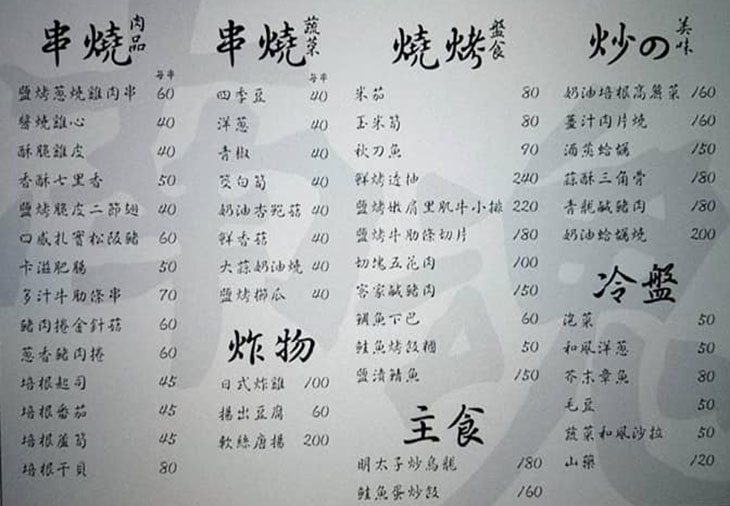 串燒 肉品
每串
鹽烤蔥燒雞肉串 60
醬燒雞心 40
酥脆雞皮 40
香酥七里香 50
鹽烤脆皮二節翅 40
口感扎實松阪豬 60
卡滋肥腸 50
多汁牛肋條串 70
豬肉捲金針菇 60
蔥香豬肉捲 60
培根起司 45
培根番茄 45
培根蘆筍 45
培根干貝 80
串燒 蔬菜
每串
四季豆 40
洋蔥 40
青椒 40
筊白筍 40
奶油杏鮑菇 40
鮮香菇 40
大蒜奶油燒 40
鹽烤櫛瓜 40
炸物
日式炸雞 100
揚出豆腐 60
軟絲唐揚 200
燒烤 盤食
米茄 80
玉米筍 80
秋刀魚 90
鮮烤透抽 240
鹽烤嫩肩里肌牛小排 220
鹽烤牛肋條切片 180
切塊五花肉 100
客家鹹豬肉 150
鯛魚下巴 60
鮭魚烤飯糰 50
鹽漬鯖魚 150
主食
明太子炒烏龍 180
鮭魚蛋炒飯 160
炒の 美味
奶油培根高麗菜 160
薑汁肉片燒 160
酒蒸蛤蠣 150
蒜酥三角骨 180
青龍鹹豬肉 180
奶油蛤蠣燒 200
冷盤
泡菜 50
和風洋蔥 50
芥末章魚 80
毛豆 50
蔬菜和風沙拉 50
山藥 120